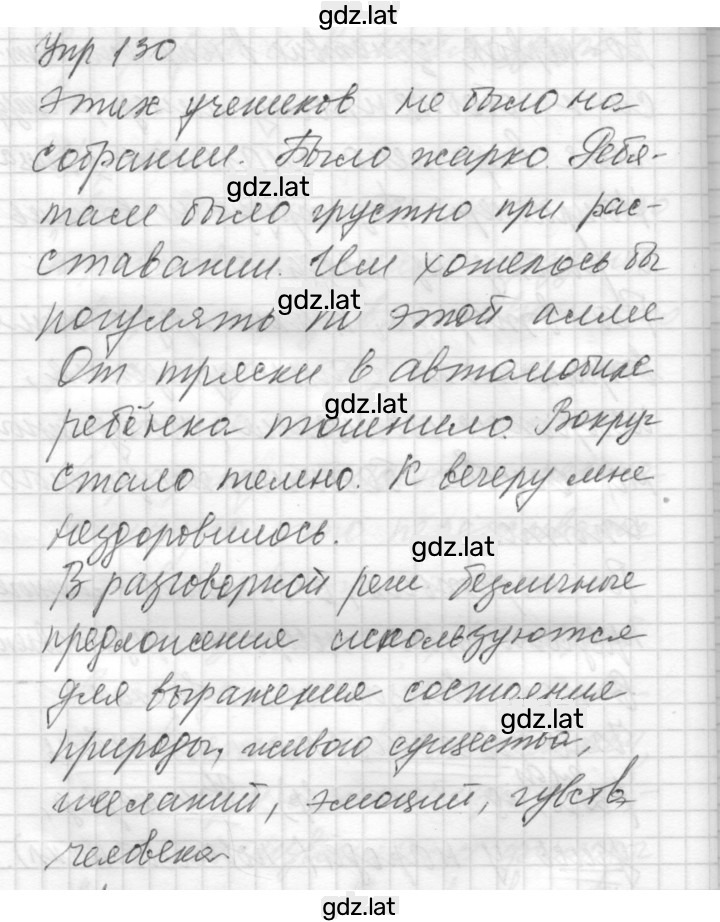 gdz.lat
Упр 130
Этих учеников не было на
собрании. Было жарко. Ребя-
gdz.lat
там было грустно при рас-
ставании. Им хотелось бы
gdz.lat
погулять по этой аллее
От тряски в автомобиле
gdz.lat
ребёнка тошнило. Вокруг
стало темно. К вечеру мне
нездоровилось.
gdz.lat
В разговорной речи безличные
предложения используются
для выражения состояния
gdz.lat
природы, живого существа,
желаний, эмоций, чувств
человека
gdz.lat